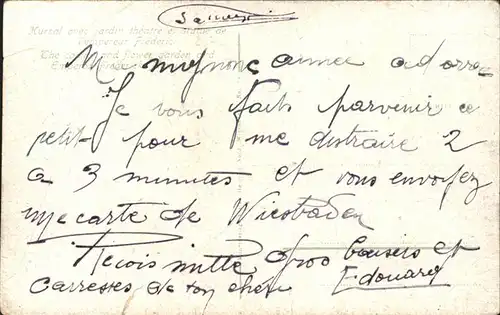 Kursaal avec jardin théatre et statue de
l'empereur Frédéric
The and flower garden
Ma mignonne aimée adorée
Je vous fais parvenir ce
petit pour me distraire 2
a 3 minutes et vous envoyez
une carte de Wiesbaden
Recois mille gros baisers et
carresses de ton cher Edouard